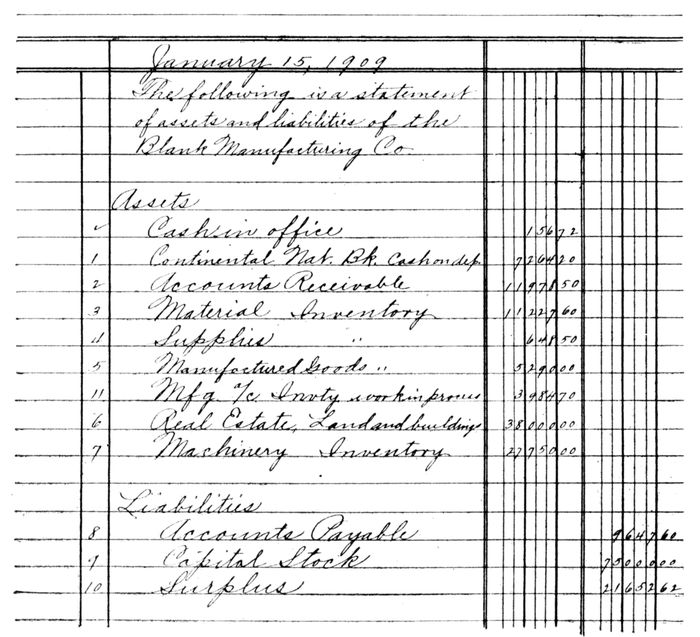 January 15, 1909
The following is a statement
of assets and liabilities of the
Blank Manufacturing Co.
Assets
✓ Cash in office 156 72
1 Continental Nat. Bk. Cash on dep. 7264 20
2 Accounts Receivable 11978 50
3 Material Inventory 11227 60
4 Supplies " 648 50
5 Manufactured Goods " 5290 00
11 Mfg a/c Invty work in process 3984 70
6 Real Estate, Land and buildings 38000 00
7 Machinery Inventory 27750 00
Liabilities
8 Accounts Payable 9647 60
9 Capital Stock 75000 00
10 Surplus 21652 62